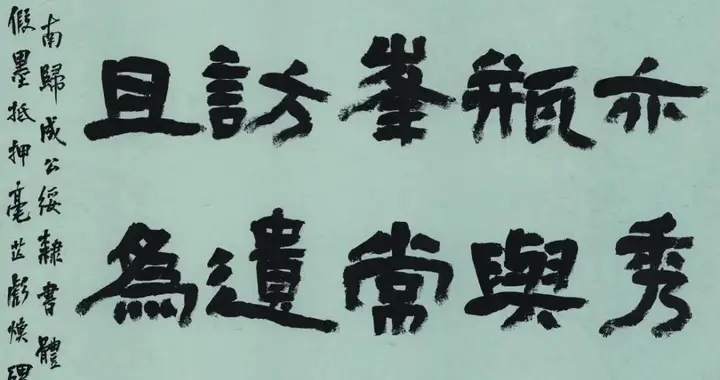 亦秀
瓶與
峯常
訪遺
且為
南歸成公綏隸書體
假墨抵押毫芒彪煥